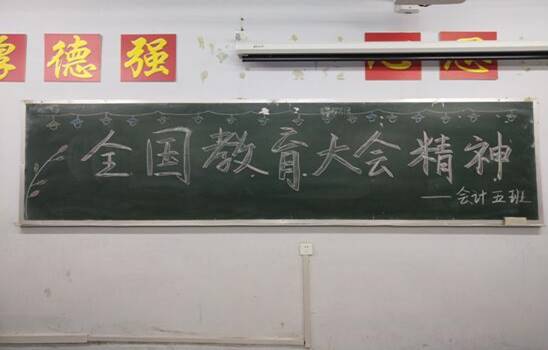 德强
全国教育大会精神
——会计五班